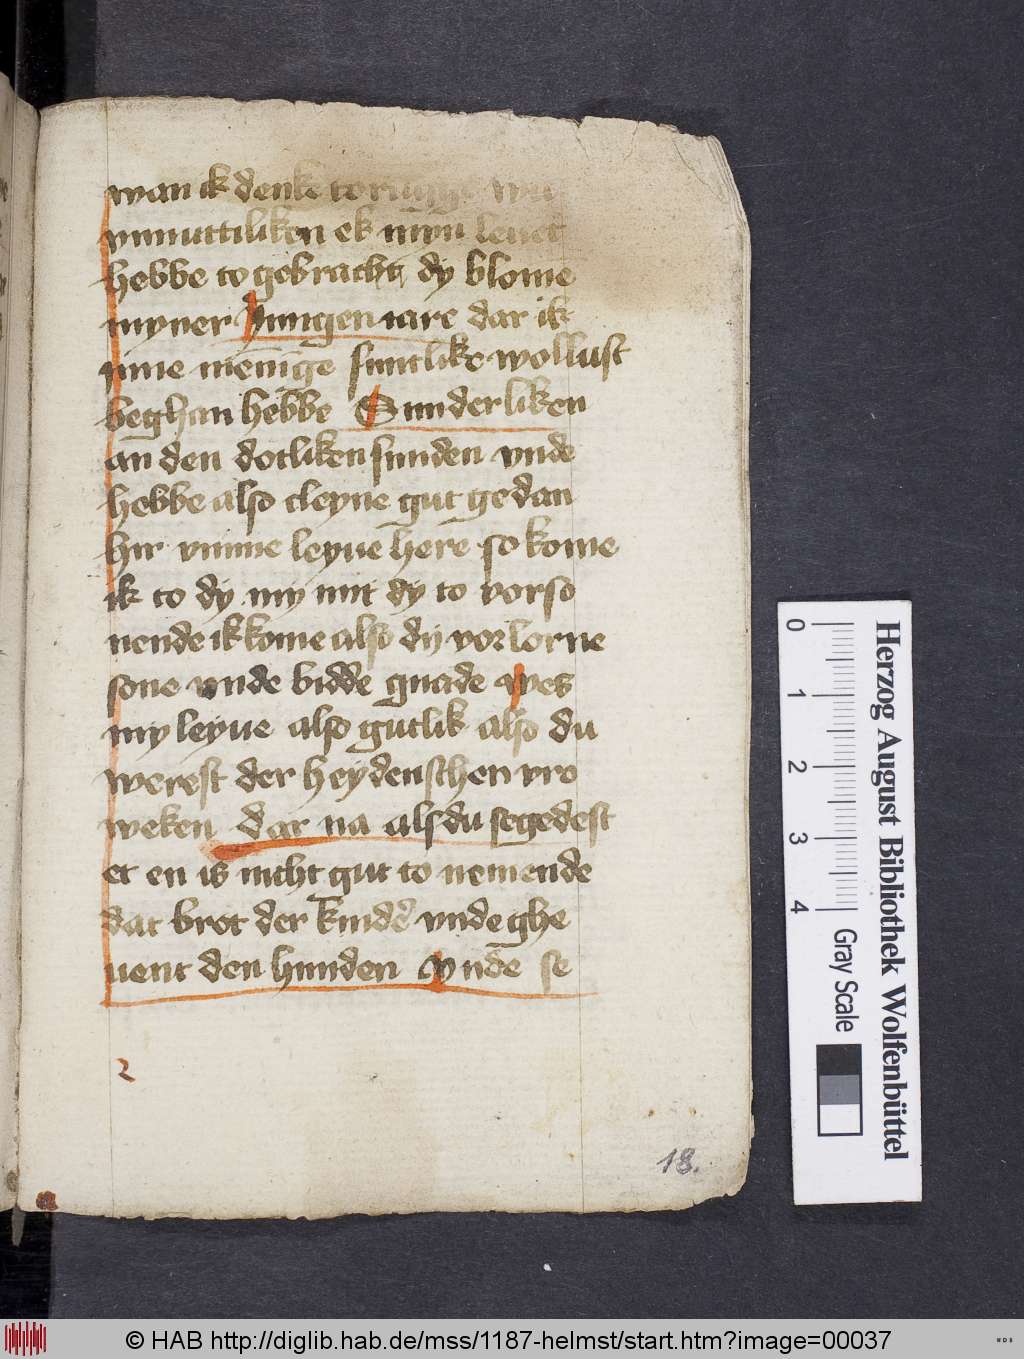 wan ik denke to rugge wu
vnnuttiliken ek myn leuet
hebbe to gebracht dy blome
myner Jungen iare dar ik
ynne mēnīge suntlike wollust
beghan hebbe Sunderliken
an den dotliken sunden vnde
hebbe also cleyne gut gedan
hir vmme leyue here so kome
ik to dy my mit dy to vorso
nende ik kome also dy vorlorne
sone vnde bidde gnade wes
my leyue also gutlik also du
werest der heydenschen vro
weken dar na als du segedest
et en is nicht gut to nemende
dat brot der kinder vnde ghe
uent den hunden vnde se
2
18.
0 1 2 3 4
Gray Scale
Herzog August Bibliothek Wolfenbüttel
© HAB http://diglib.hab.de/mss/1187-helmst/start.htm?image=00037
WDB